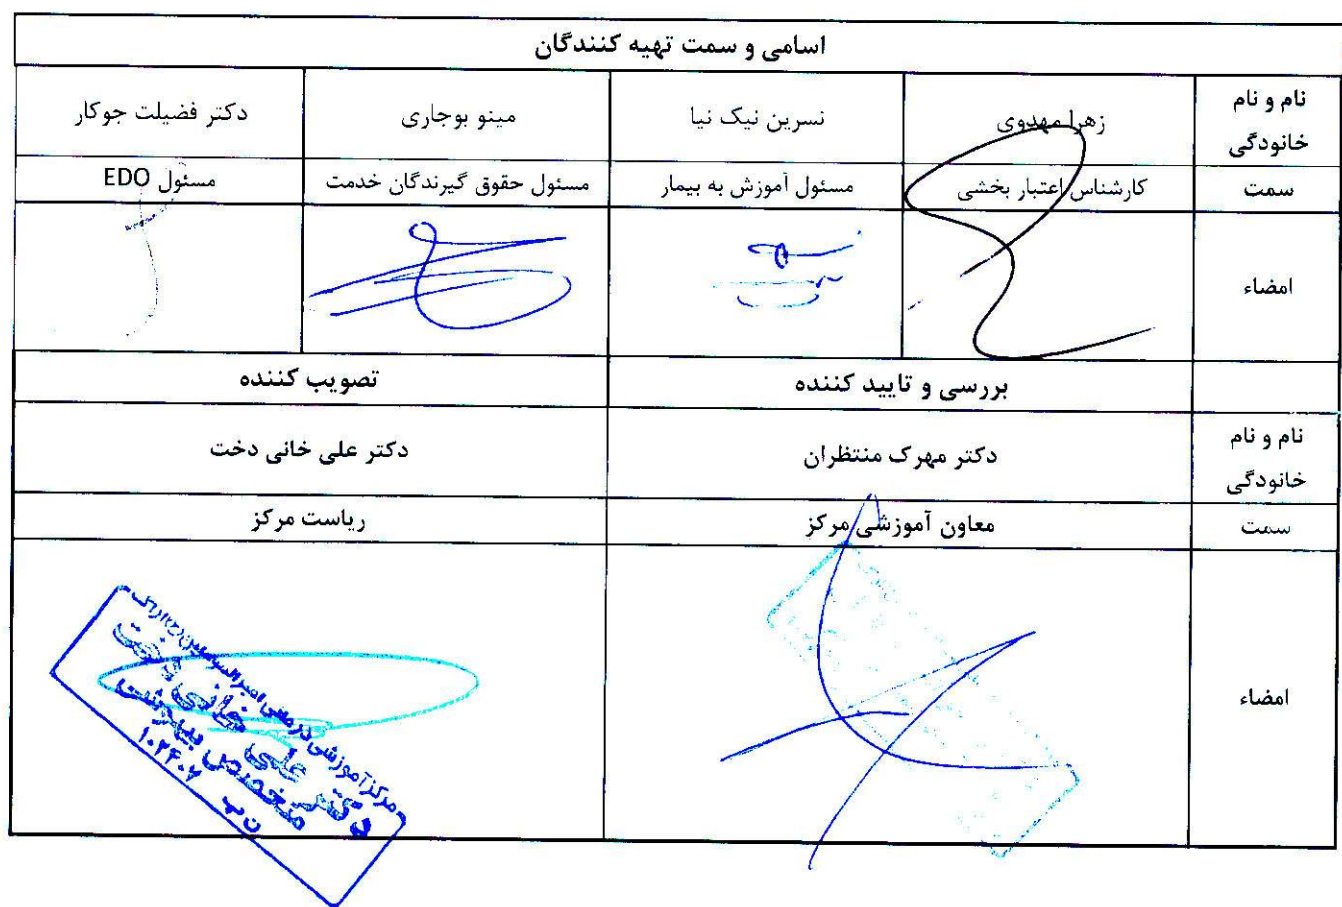 اسامی و سمت تهیه کنندگان
نام و نام خانودگی زهرا مهدوی نسرین نیک نیا مینو بوجاری دکتر فضیلت جوکار
سمت کارشناس اعتبار بخشی مسئول آموزش به بیمار مسئول حقوق گیرندگان خدمت مسئول EDO
امضاء
بررسی و تایید کننده تصویب کننده
نام و نام خانودگی دکتر مهرک منتظران دکتر علی خانی دخت
سمت معاون آموزشی مرکز ریاست مرکز
امضاء
مرکز آموزشی درمانی امیرالمومنین (ع) اراک
دکتر علی خانی دخت
متخصص بیهوشی